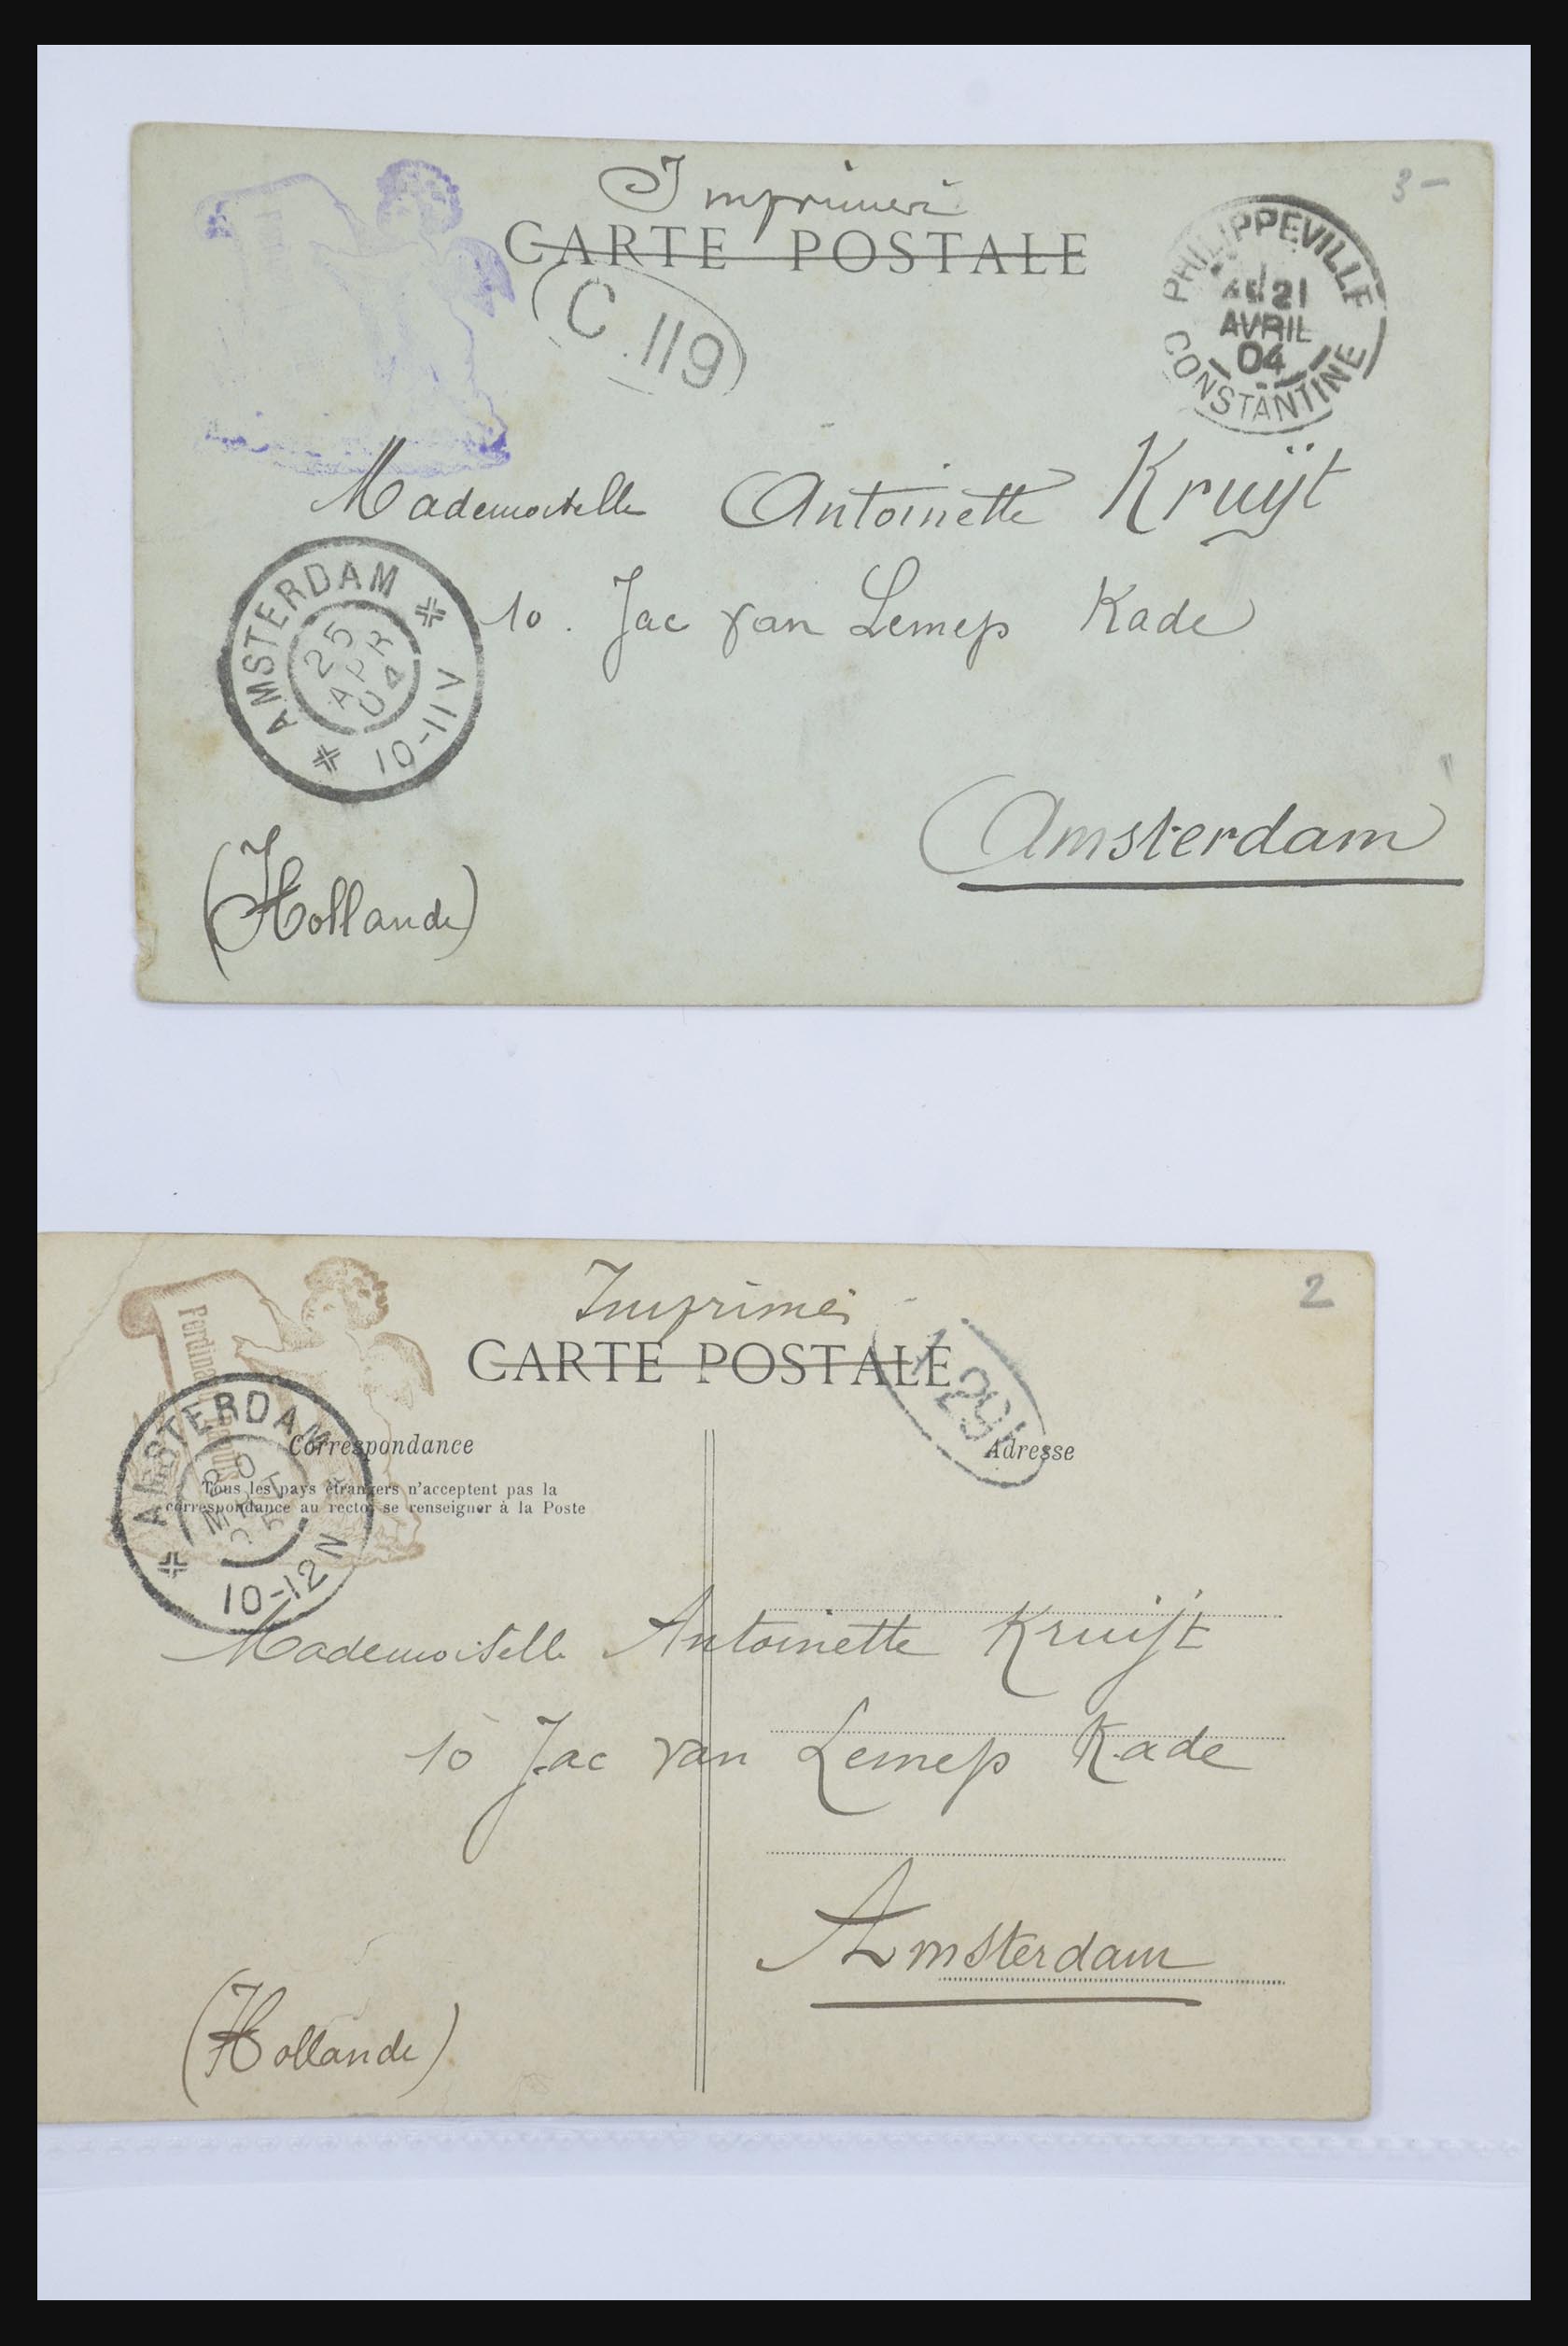 Imprimé
3 -
CARTE POSTALE
C 119
PHILIPPEVILLE
21
AVRIL
04
CONSTANTINE
Mademoiselle Antoinette Kruÿt
AMSTERDAM
25
APR
04
10-11V
10. Jac van Lennep Kade
Amsterdam
(Hollande)
2
Imprimé
CARTE POSTALE
29
Correspondance
Adresse
Tous les pays étrangers n'acceptent pas la
correspondance au recto, se renseigner à la Poste
AMSTERDAM
10-12N
Mademoiselle Antoinette Kruijt
10 Jac van Lennep Kade
Amsterdam
(Hollande)